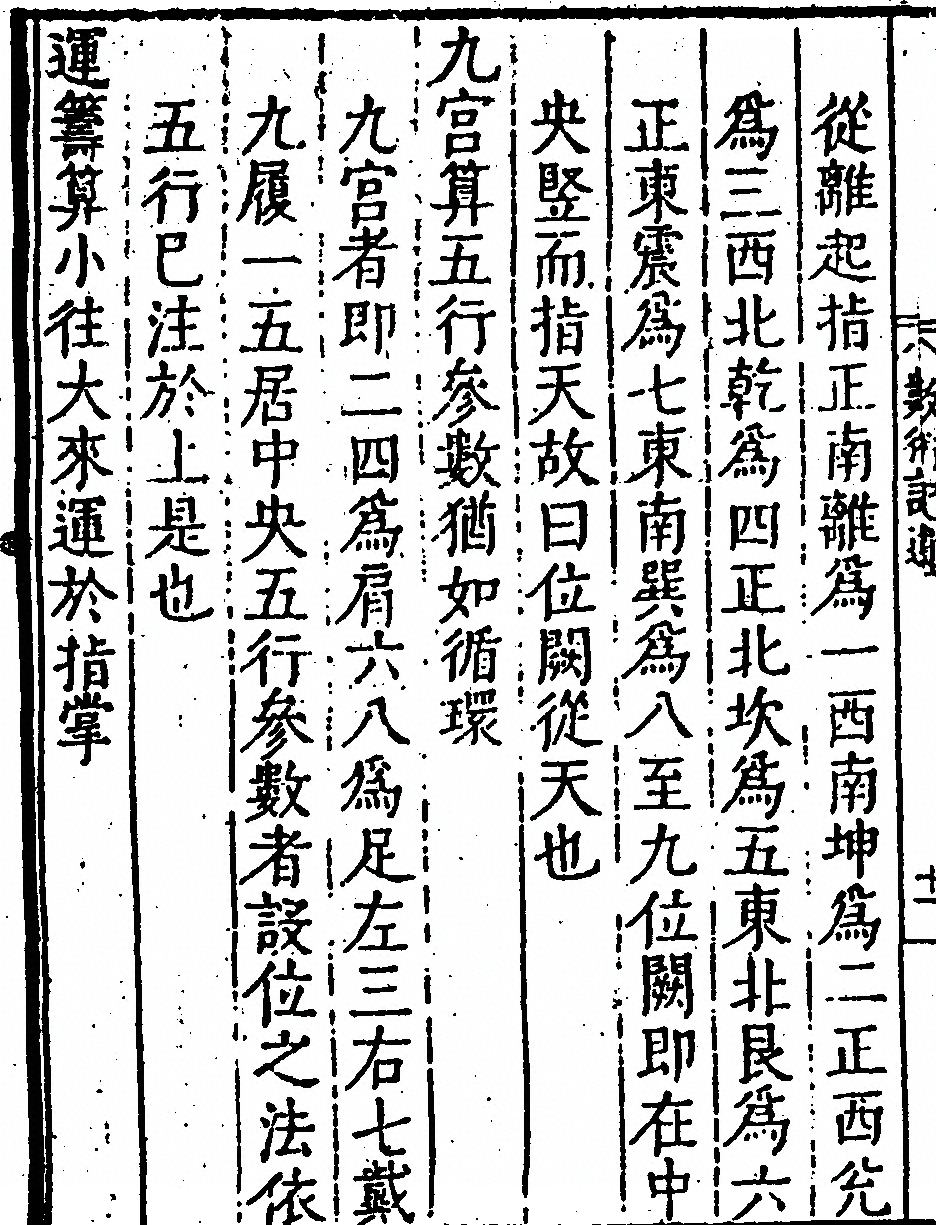 數術記遺
十一
從離起指正南離為一西南坤為二正西兊
為三西北乾為四正北坎為五東北艮為六
正東震為七東南巽為八至九位闕即在中
央竪而指天故曰位闕從天也
九宮算五行參數猶如循環
九宮者即二四為肩六八為足左三右七戴
九履一五居中央五行參數者設位之法依
五行巳注於上是也
運籌算小往大來運於指掌